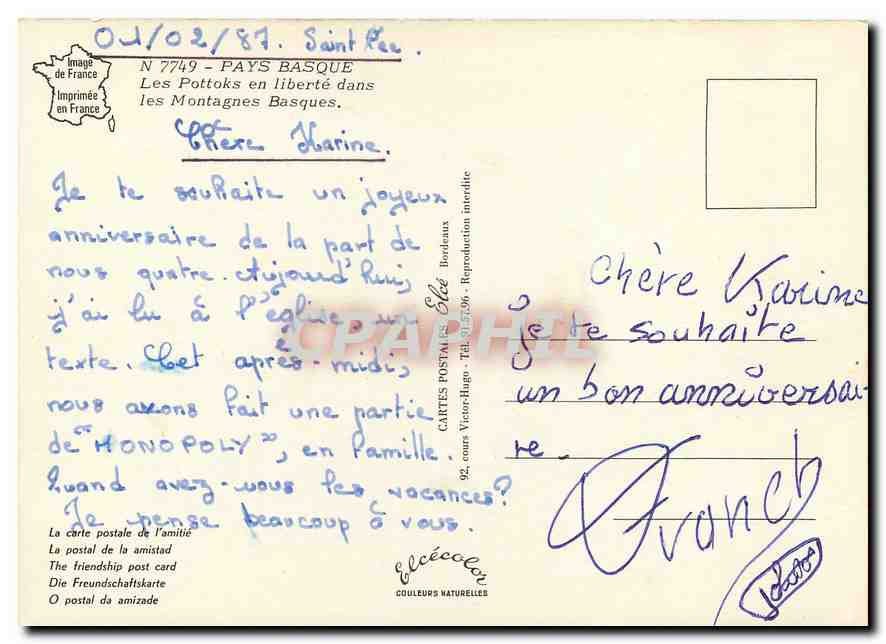 01/02/87. Saint Pée.
Image
de France
Imprimée
en France
N 7749 - PAYS BASQUE
Les Pottoks en liberté dans
les Montagnes Basques.
Chère Karine.
Je te souhaite un joyeux
anniversaire de la part de
nous quatre. Aujourd'hui,
j'ai lu à l'église, un
texte. Cet après-midi,
nous avons fait une partie
de "MONOPOLY", en famille.
Quand avez-vous les vacances?
Je pense beaucoup à vous.
La carte postale de l'amitié
La postal de la amistad
The friendship post card
Die Freundschaftskarte
O postal da amizade
CARTES POSTALES Elcé Bordeaux
92, cours Victor-Hugo - Tél. 91.57.96 - Reproduction interdite
Elcécolor
COULEURS NATURELLES
CPAPHIL
Chère Karine
je te souhaite
un bon anniversai-
re.